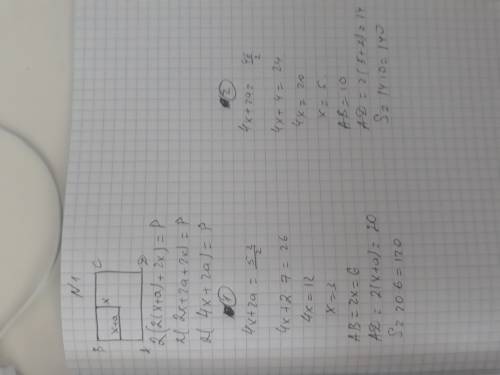 N1
B C
x+a x
A D
2(2(x+a)+2x)=P
2(2x+2a+2x)=P
2(4x+2a)=P
①
4x+2a=52/2
4x+2·7=26
4x=12
x=3
AB=2x=6
AD=2(x+a)=20
S=20·6=120
②
4x+2a=48/2
4x+4=24
4x=20
x=5
AB=10
AD=2(5+2)=14
S=14·10=140